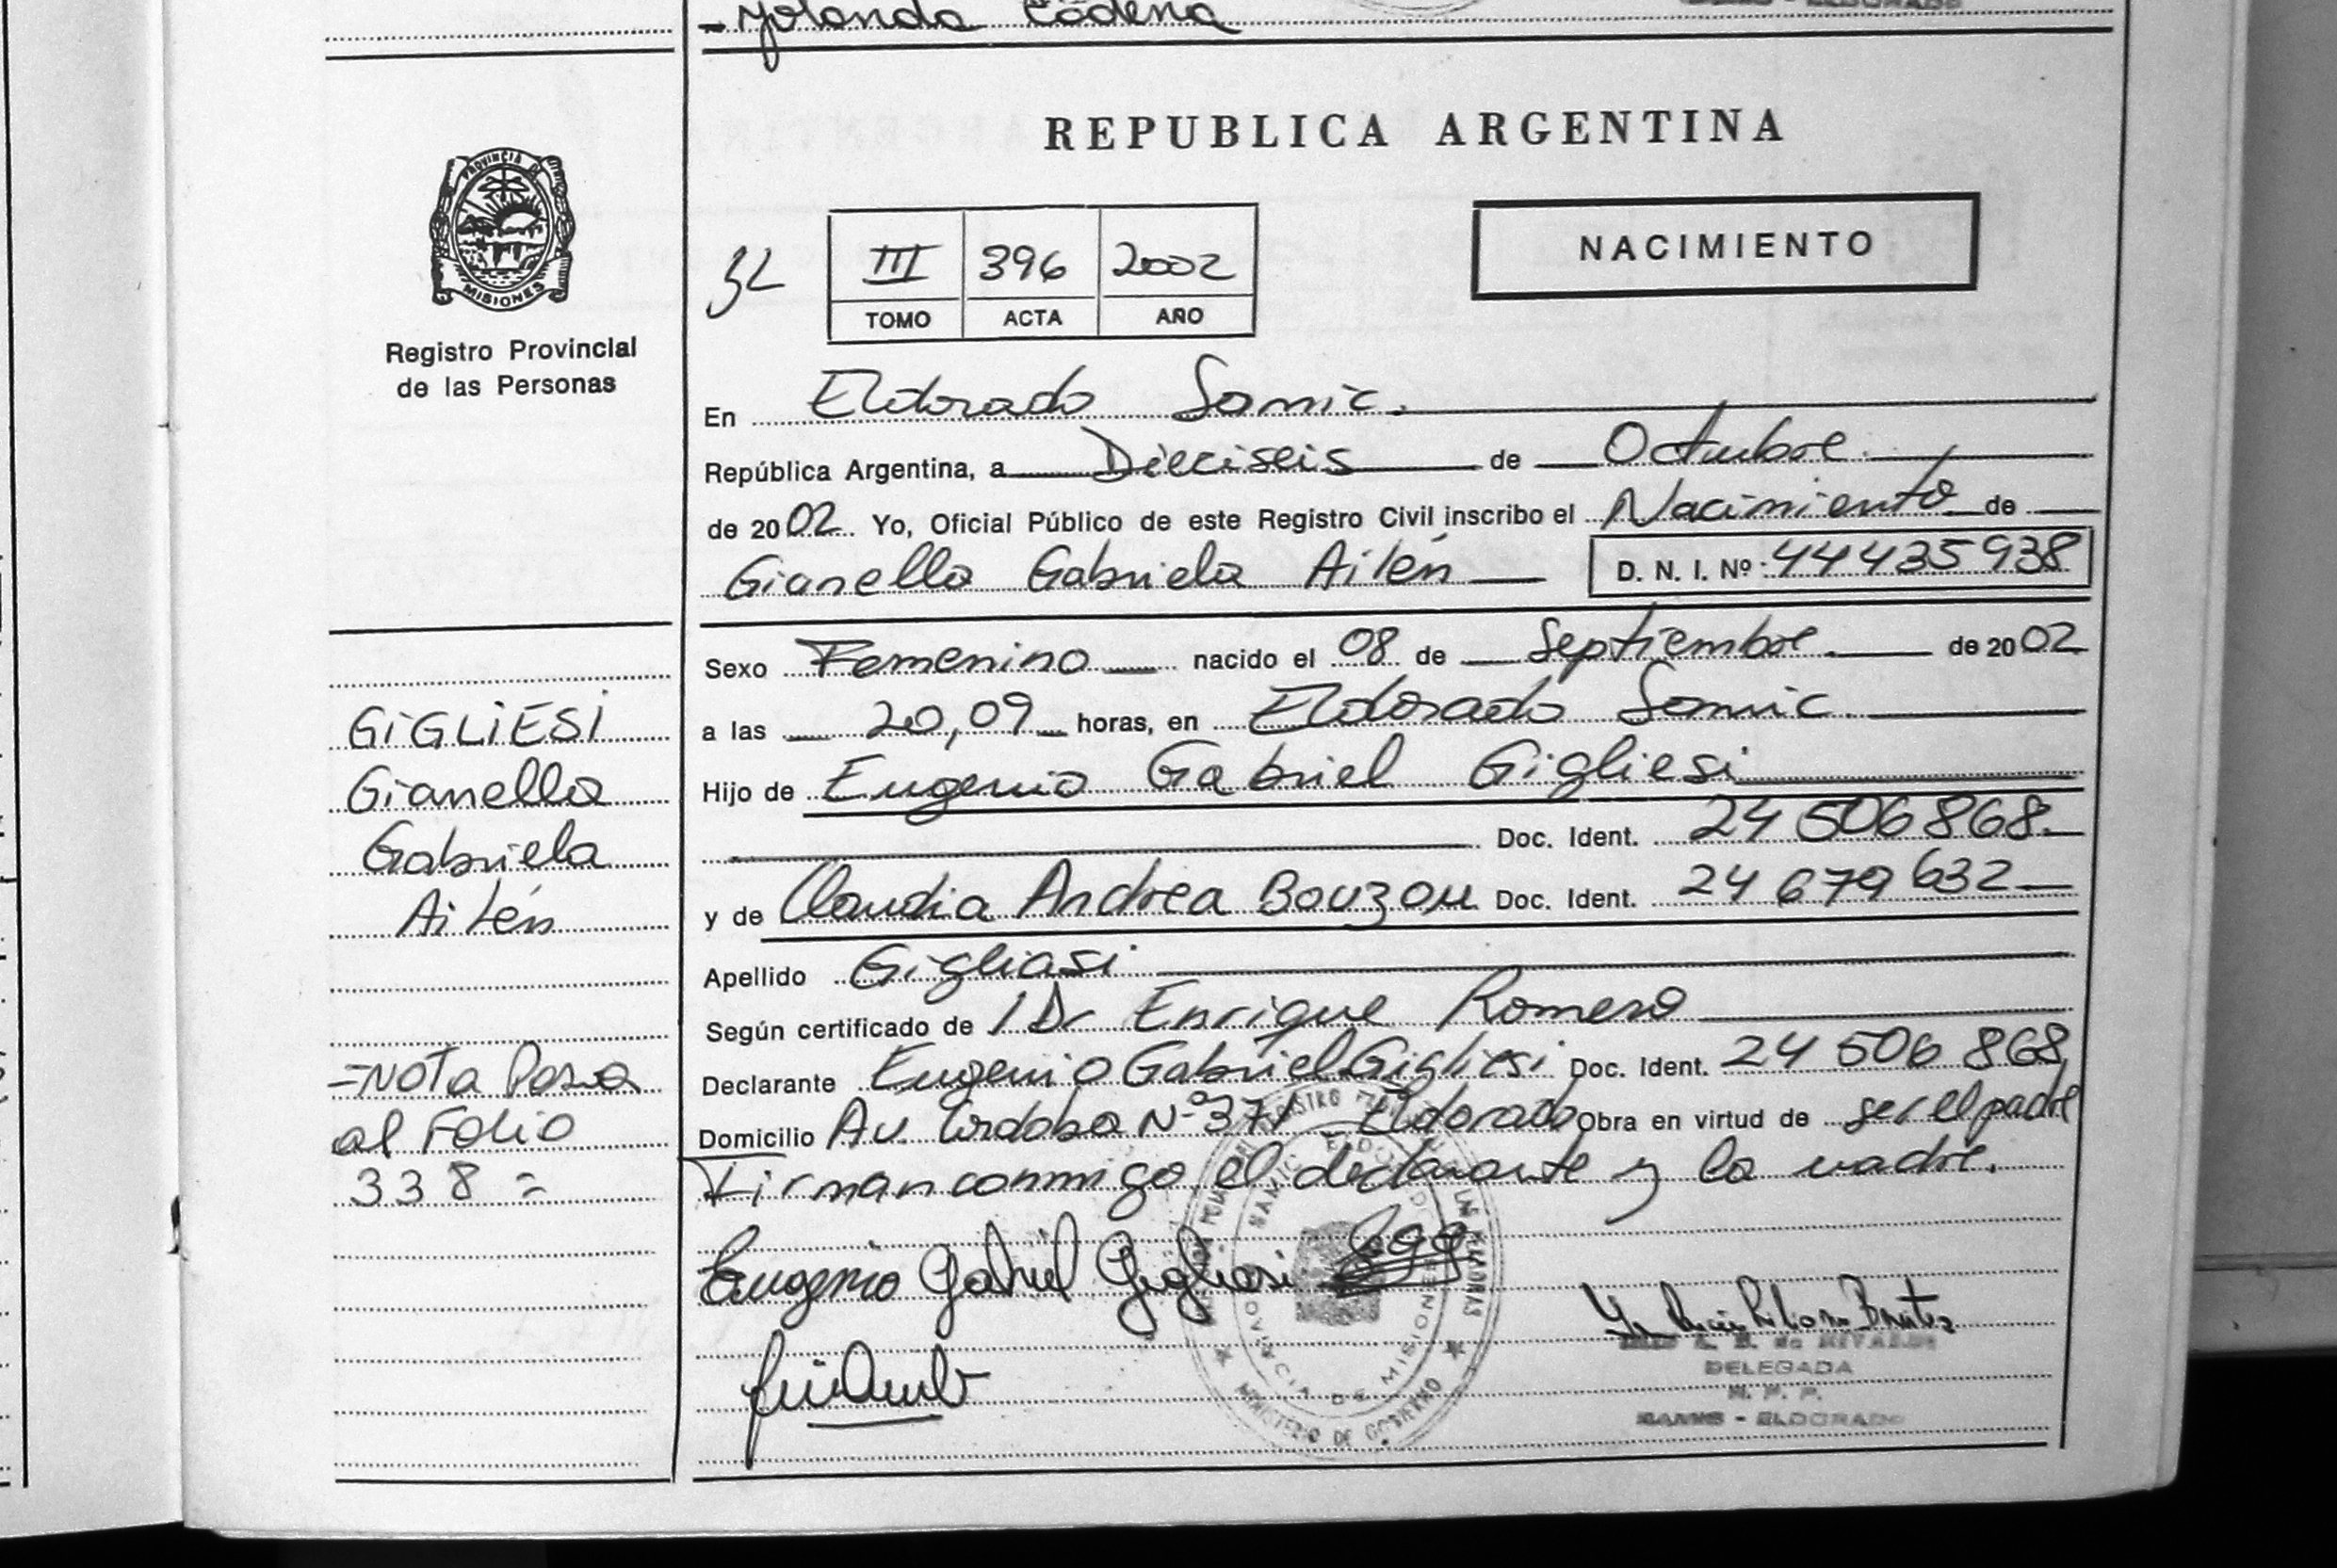 Yolanda Codena
REPUBLICA ARGENTINA
PROVINCIA DE
MISIONES
Registro Provincial
de las Personas
32
III 396 2002
TOMO ACTA AÑO
NACIMIENTO
En Eldorado Samic.
República Argentina, a Dieciseis de Octubre.
de 2002. Yo, Oficial Público de este Registro Civil inscribo el Nacimiento de
Gianella Gabriela Ailén D. N. I. Nº 44435938
Sexo Femenino nacido el 08 de Septiembre. de 2002
a las 20,09 horas, en Eldorado Samic.
Hijo de Eugenio Gabriel Gigliesi
Doc. Ident. 24 506 868.
y de Claudia Andrea Bouzou Doc. Ident. 24 679 632
Apellido Gigliasi
Según certificado de Dr Enrique Romero
Declarante Eugenio Gabriel Gigliesi Doc. Ident. 24 506 868
Domicilio Av. Cordoba Nº 371 Eldorado Obra en virtud de ser el padre
Firman conmigo el declarante y la madre.
GIGLIESI
Gianella
Gabriela
Ailén
=Nota Pasa
al Folio
338=
Eugenio Gabriel Gigliasi
DELEGADA
SAMIC - ELDORADO
PROVINCIA DE MISIONES
MINISTERIO DE GOBIERNO